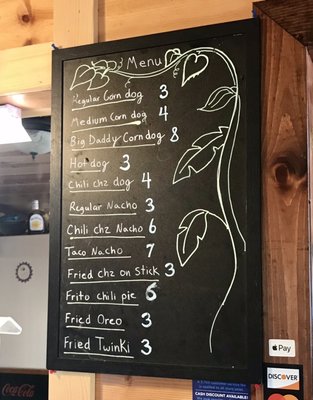 Menu
Regular Corn dog 3
Medium Corn dog 4
Big Daddy Corn dog 8
Hot dog 3
Chili chz dog 4
Regular Nacho 3
Chili chz Nacho 6
Taco Nacho 7
Fried chz on Stick 3
Frito chili pie 6
Fried Oreo 3
Fried Twinki 3
Pay
DISCOVER
CASH DISCOUNT AVAILABLE!
Coca-Cola